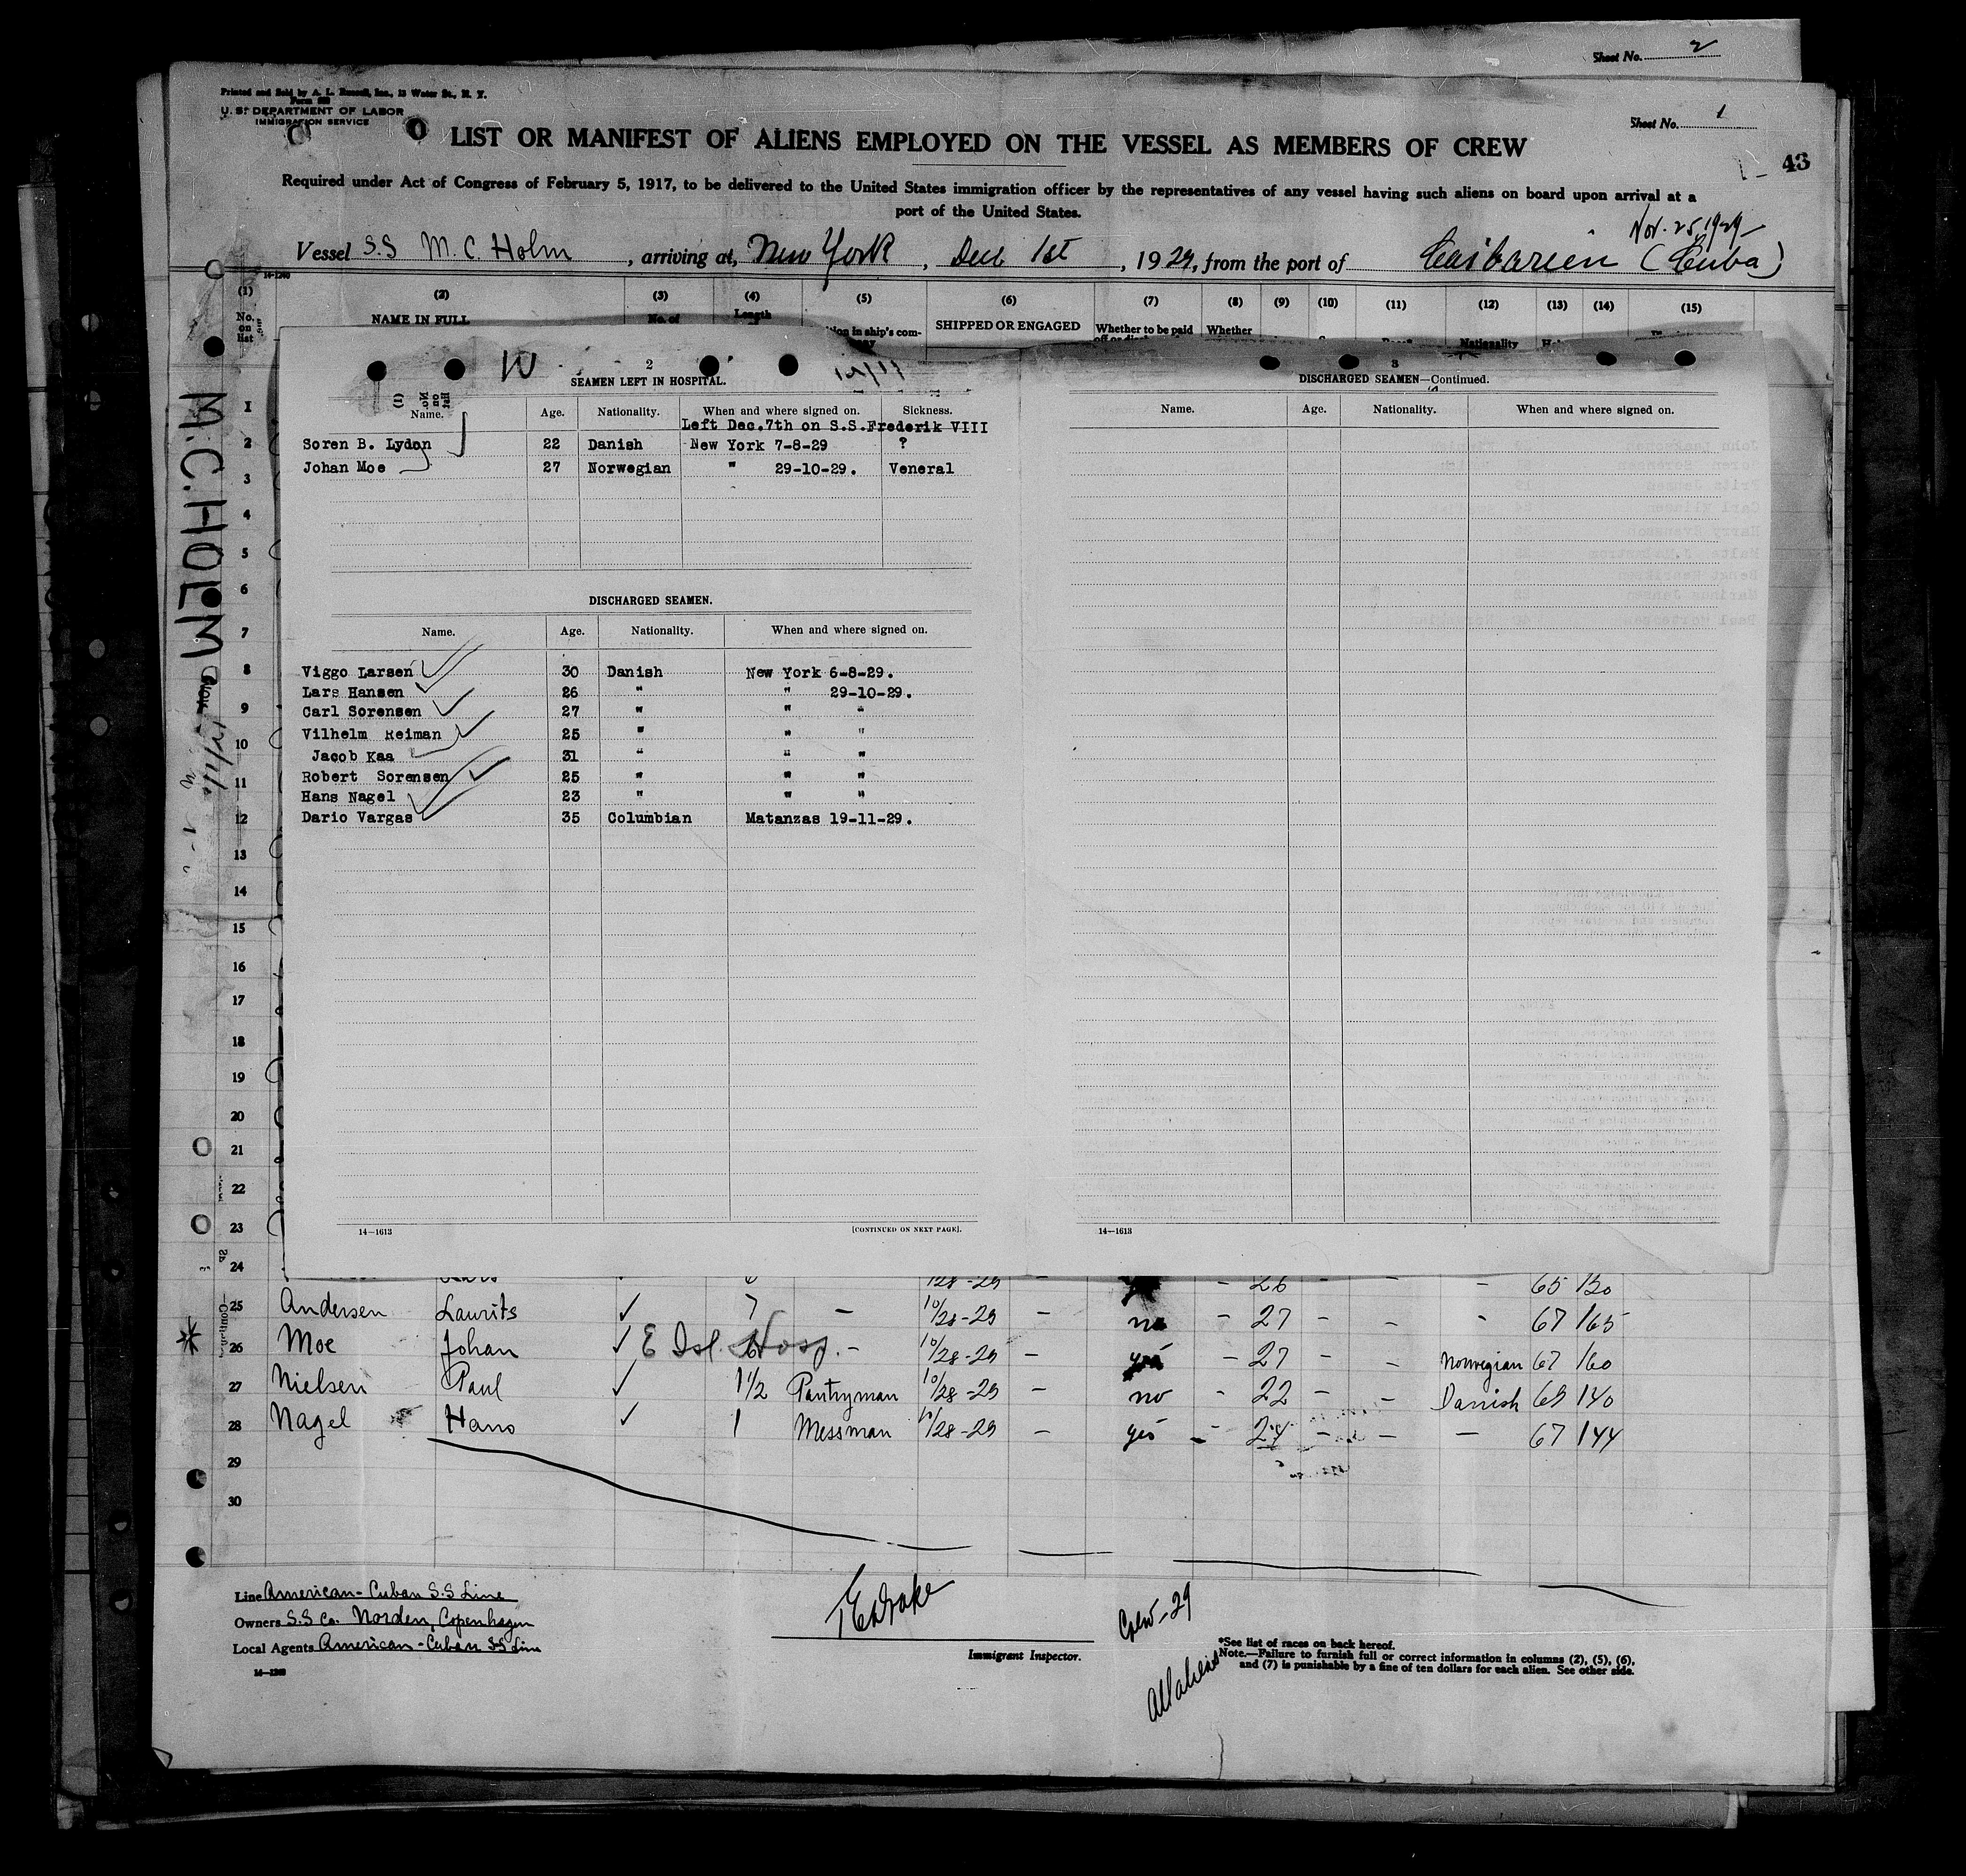 Sheet No. 2
Printed and Sold by A. L. Russell, Inc., 13 Water St., N. Y.
U. S. DEPARTMENT OF LABOR
IMMIGRATION SERVICE
Sheet No. 1
LIST OR MANIFEST OF ALIENS EMPLOYED ON THE VESSEL AS MEMBERS OF CREW
43
Required under Act of Congress of February 5, 1917, to be delivered to the United States immigration officer by the representatives of any vessel having such aliens on board upon arrival at a
port of the United States.
Nov. 25, 1929
Vessel S.S M.C. Holm, arriving at, New York, Dec 1st, 1929, from the port of Caibarien (Cuba)
14-1240
(1) (2) (3) (4) (5) (6) (7) (8) (9) (10) (11) (12) (13) (14) (15)
No. on list NAME IN FULL No. of Length ition in ship's com- SHIPPED OR ENGAGED Whether to be paid Whether Nationality
M.C. HOLM
2
SEAMEN LEFT IN HOSPITAL.
Name. Age. Nationality. When and where signed on. Sickness.
Left Dec.7th on S.S.Frederik VIII
Soren B. Lydon 22 Danish New York 7-8-29 ?
Johan Moe 27 Norwegian " 29-10-29. Veneral
DISCHARGED SEAMEN.
Name. Age. Nationality. When and where signed on.
Viggo Larsen 30 Danish New York 6-8-29.
Lars Hansen 26 " " 29-10-29.
Carl Sorensen 27 " " "
Vilhelm Reiman 25 " " "
Jacob Kaa 31 " " "
Robert Sorensen 25 " " "
Hans Nagel 23 " " "
Dario Vargas 35 Columbian Matanzas 19-11-29.
14—1613 [CONTINUED ON NEXT PAGE].
3
DISCHARGED SEAMEN—Continued.
Name. Age. Nationality. When and where signed on.
14—1613
1
2
3
4
5
6
7
8
9
10
11
12
13
14
15
16
17
18
19
20
21
22
23
24 Lars 10/28-29 - 26 - - 65 150
25 Andersen Laurits ✓ 7 - 10/28-29 - no - 27 - - - 67 165
26 Moe Johan ✓ E Isl. Hosp. - 10/28-29 - yes - 27 - - Norwegian 67 160
27 Nielsen Paul ✓ 1 1/2 Pantryman 10/28-29 - no - 22 - - Danish 69 140
28 Nagel Hans ✓ 1 Messman 10/28-29 - yes - 24 - - - 67 144
29
30
Line American-Cuban S.S Line
Owners S.S Co. Norden, Copenhagen
Local Agents American-Cuban SS Line
14—1240
Immigrant Inspector.
Crew-29
All aliens
*See list of races on back hereof.
Note.—Failure to furnish full or correct information in columns (2), (5), (6),
and (7) is punishable by a fine of ten dollars for each alien. See other side.